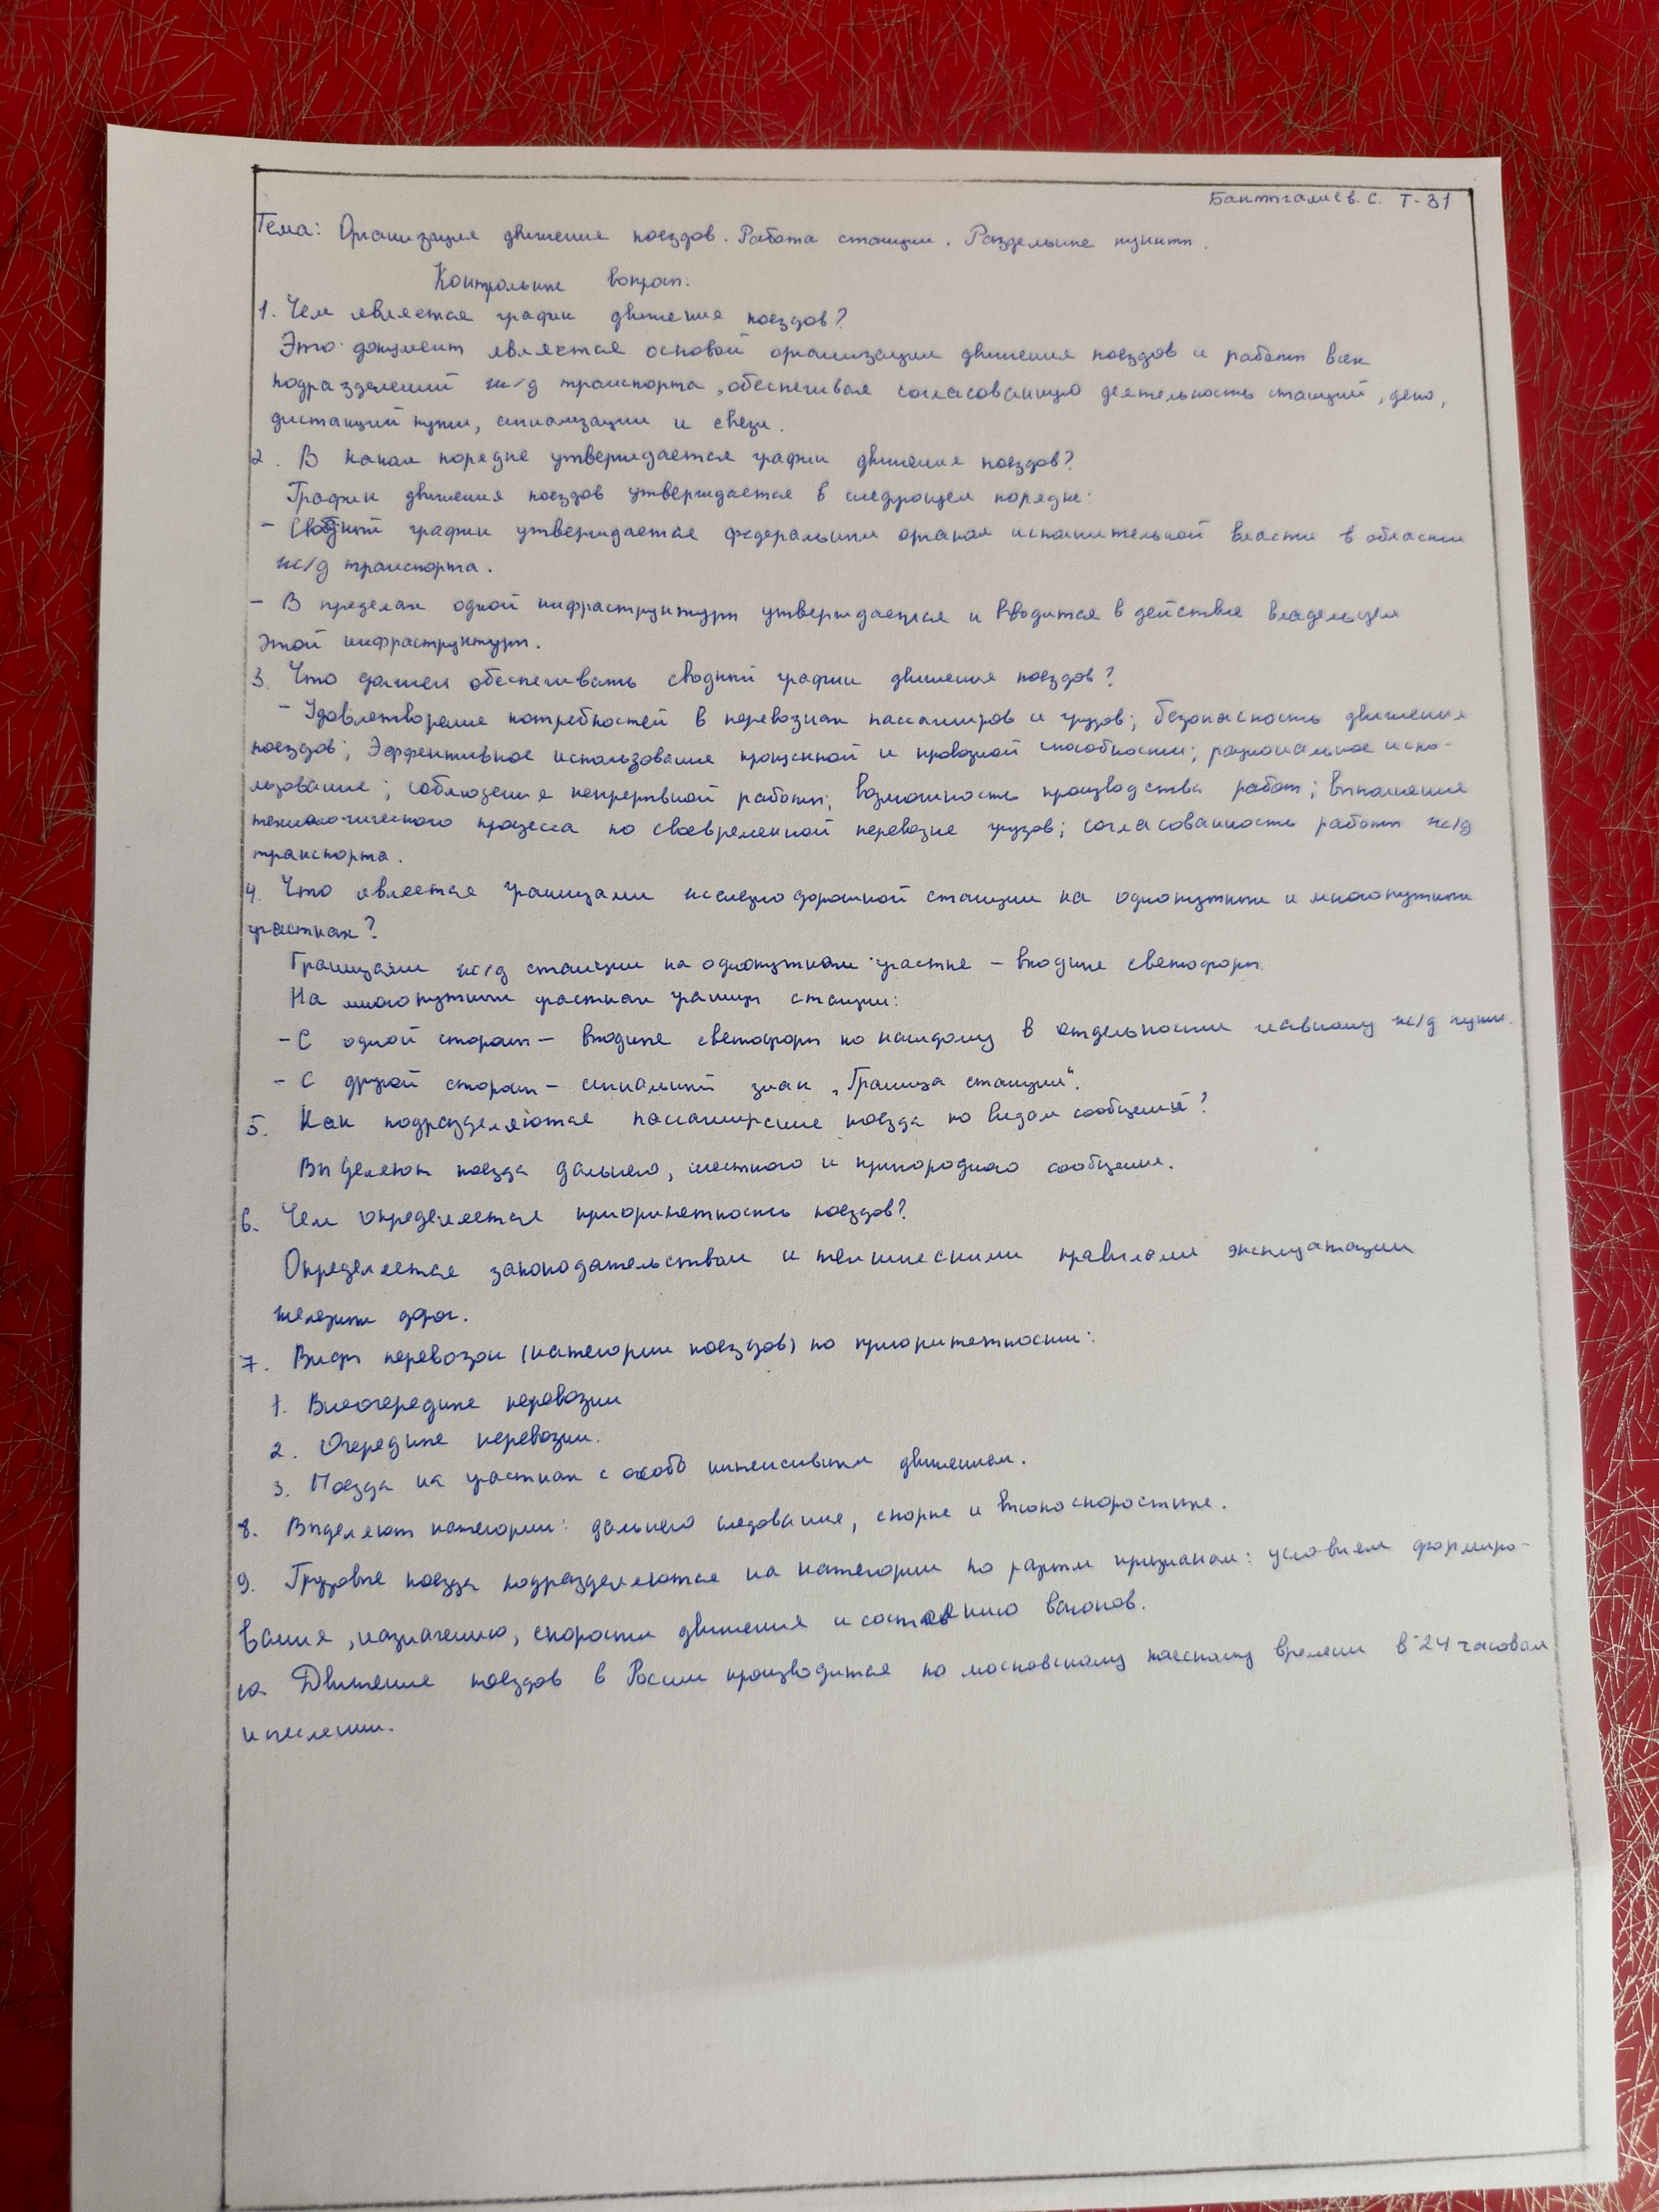 Бактыгалиев. С. Т-31
Тема: Организация движения поездов. Работа станции. Раздельные пункты.
Контрольные вопросы.
1. Чем является график движения поездов?
Это документ является основой организации движения поездов и работы всех
подразделений ж/д транспорта, обеспечивая согласованную деятельность станций, депо,
дистанций пути, сигнализации и связи.
2. В каком порядке утверждается график движения поездов?
График движения поездов утверждается в следующем порядке:
- Сводный график утверждается федеральным органом исполнительной власти в области
ж/д транспорта.
- В пределах одной инфраструктуры утверждается и вводится в действие владельцем
этой инфраструктуры.
3. Что должен обеспечивать сводный график движения поездов?
- Удовлетворение потребностей в перевозках пассажиров и грузов; безопасность движения
поездов; Эффективное использование пропускной и провозной способности; рациональное испо-
льзование; соблюдение непрерывной работы; возможность производства работ; выполнение
технологического процесса по своевременной перевозке грузов; согласованность работы ж/д
транспорта.
4. Что является границами железнодорожной станции на однопутных и многопутных
участках?
Границами ж/д станции на однопутном участке - входные светофоры.
На многопутных участках границы станции:
- С одной стороны - входные светофоры по каждому в отдельности главному ж/д пути.
- С другой стороны - сигнальный знак „Граница станции“.
5. Как подразделяются пассажирские поезда по видам сообщений?
Выделяют поезда дальнего, местного и пригородного сообщения.
6. Чем определяется приоритетность поездов?
Определяется законодательством и техническими правилами эксплуатации
железных дорог.
7. Виды перевозок (категории поездов) по приоритетности:
1. Внеочередные перевозки
2. Очередные перевозки.
3. Поезда на участках с особо интенсивным движением.
8. Выделяют категории: дальнего следования, скорые и высокоскоростные.
9. Грузовые поезда подразделяются на категории по разным признакам: условиям формиро-
вания, назначению, скорости движения и состоянию вагонов.
10. Движение поездов в России производится по московскому поясному времени в 24 часовом
исчислении.